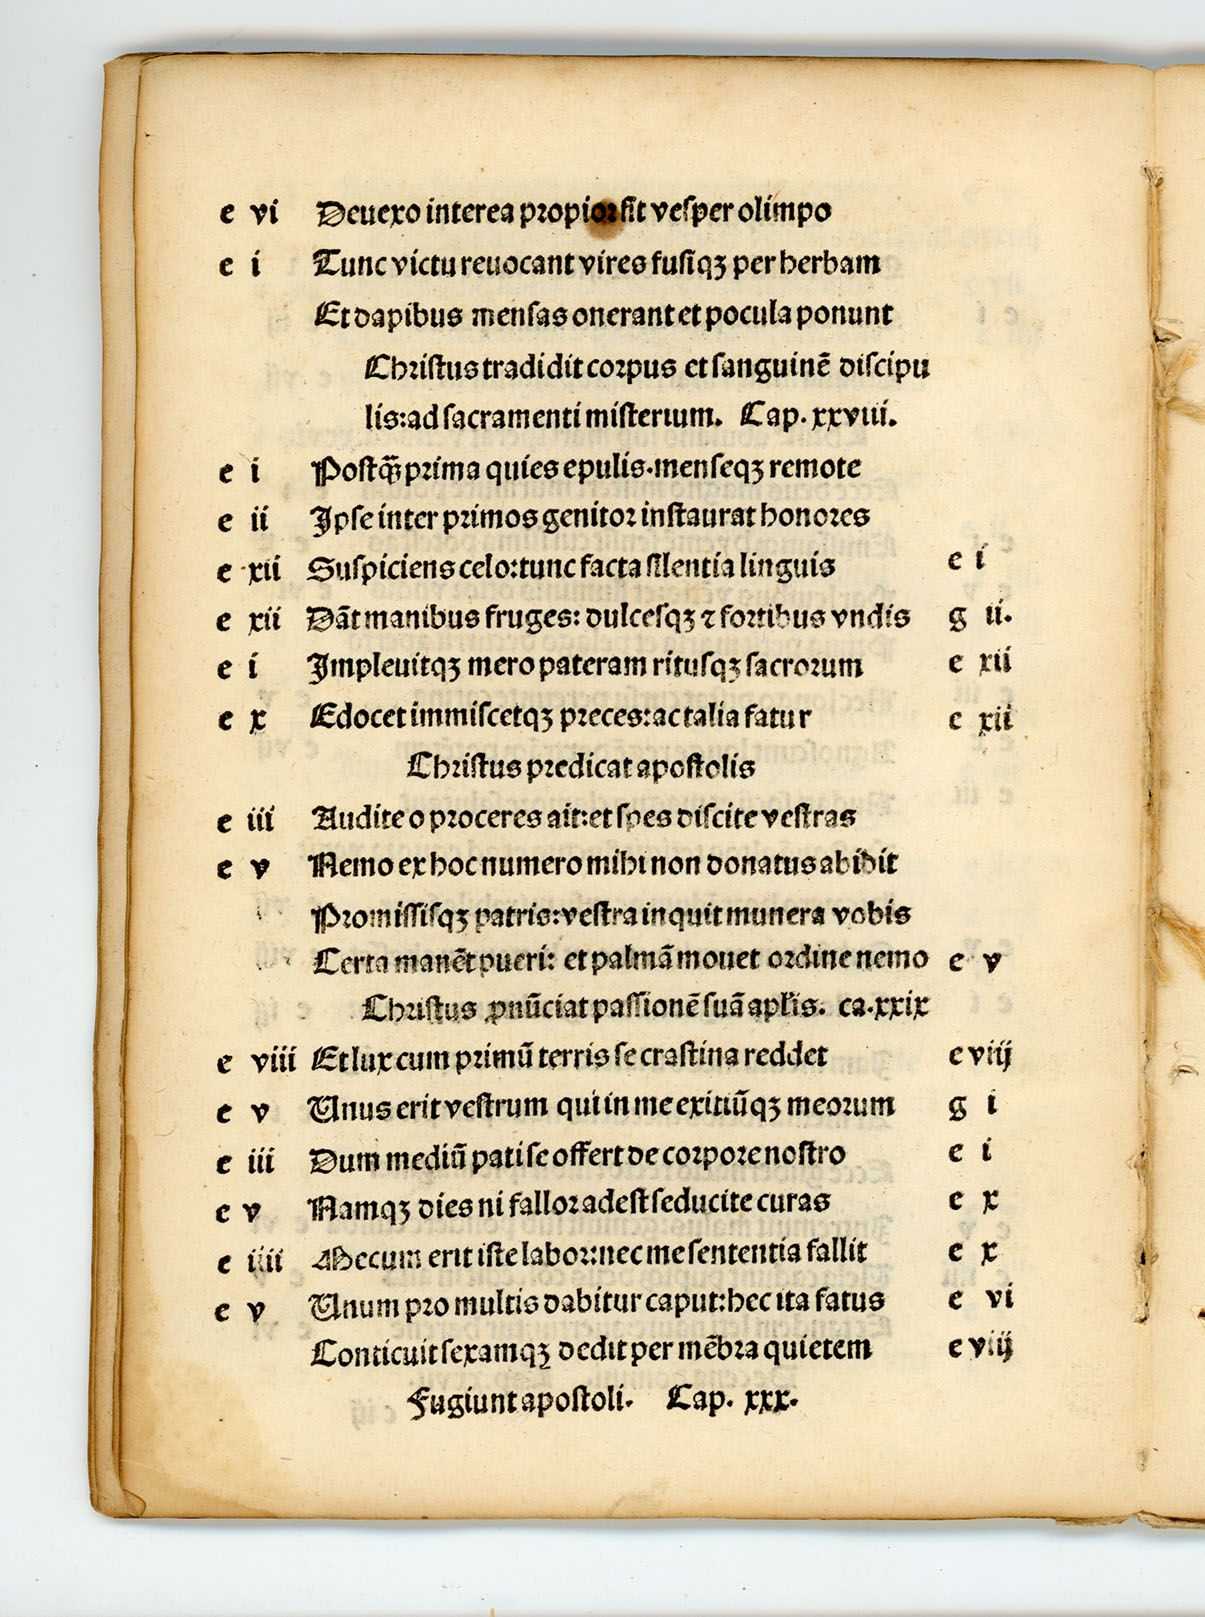 e vi Deuexo interea propior fit vesper olimpo
e i Tunc victu reuocant vires fusiqꝫ per herbam
Et dapibus mensas onerant et pocula ponunt
Christus tradidit corpus et sanguinē discipu
lis: ad sacramenti misterium. Cap. xxviii.
e i Postq̄ꝫ prima quies epulis. menseqꝫ remote
e ii Ipse inter primos genitor instaurat honores
e xii Suspiciens celo: tunc facta silentia linguis e i
e xii Dāt manibus fruges: dulcesqꝫ ⁊ fortibus vndis g ii.
e i Impleuitqꝫ mero pateram ritusqꝫ sacrorum e xii
e x Edocet immiscetqꝫ preces: ac talia fatur e xii
Christus predicat apostolis
e iii Audite o proceres ait: et spes discite vestras
e v Nemo ex hoc numero mihi non donatus abibit
Promissisqꝫ patris: vestra inquit munera vobis
Certa manēt pueri: et palmā mouet ordine nemo e v
Christus ꝓnūciat passionē suā aplis. ca. xxix
e viii Et lux cum primū terris se crastina reddet e viij
e v Unus erit vestrum qui in me exitiūqꝫ meorum g i
e iii Dum mediū pati se offert de corpore nostro e i
e v Namqꝫ dies ni fallor adest seducite curas e x
e iiii Mecum erit iste labor: nec me sententia fallit e x
e v Unum pro multis dabitur caput: hec ita fatus e vi
Conticuit sexamqꝫ dedit per mēbra quietem e viij
Fugiunt apostoli. Cap. xxx.